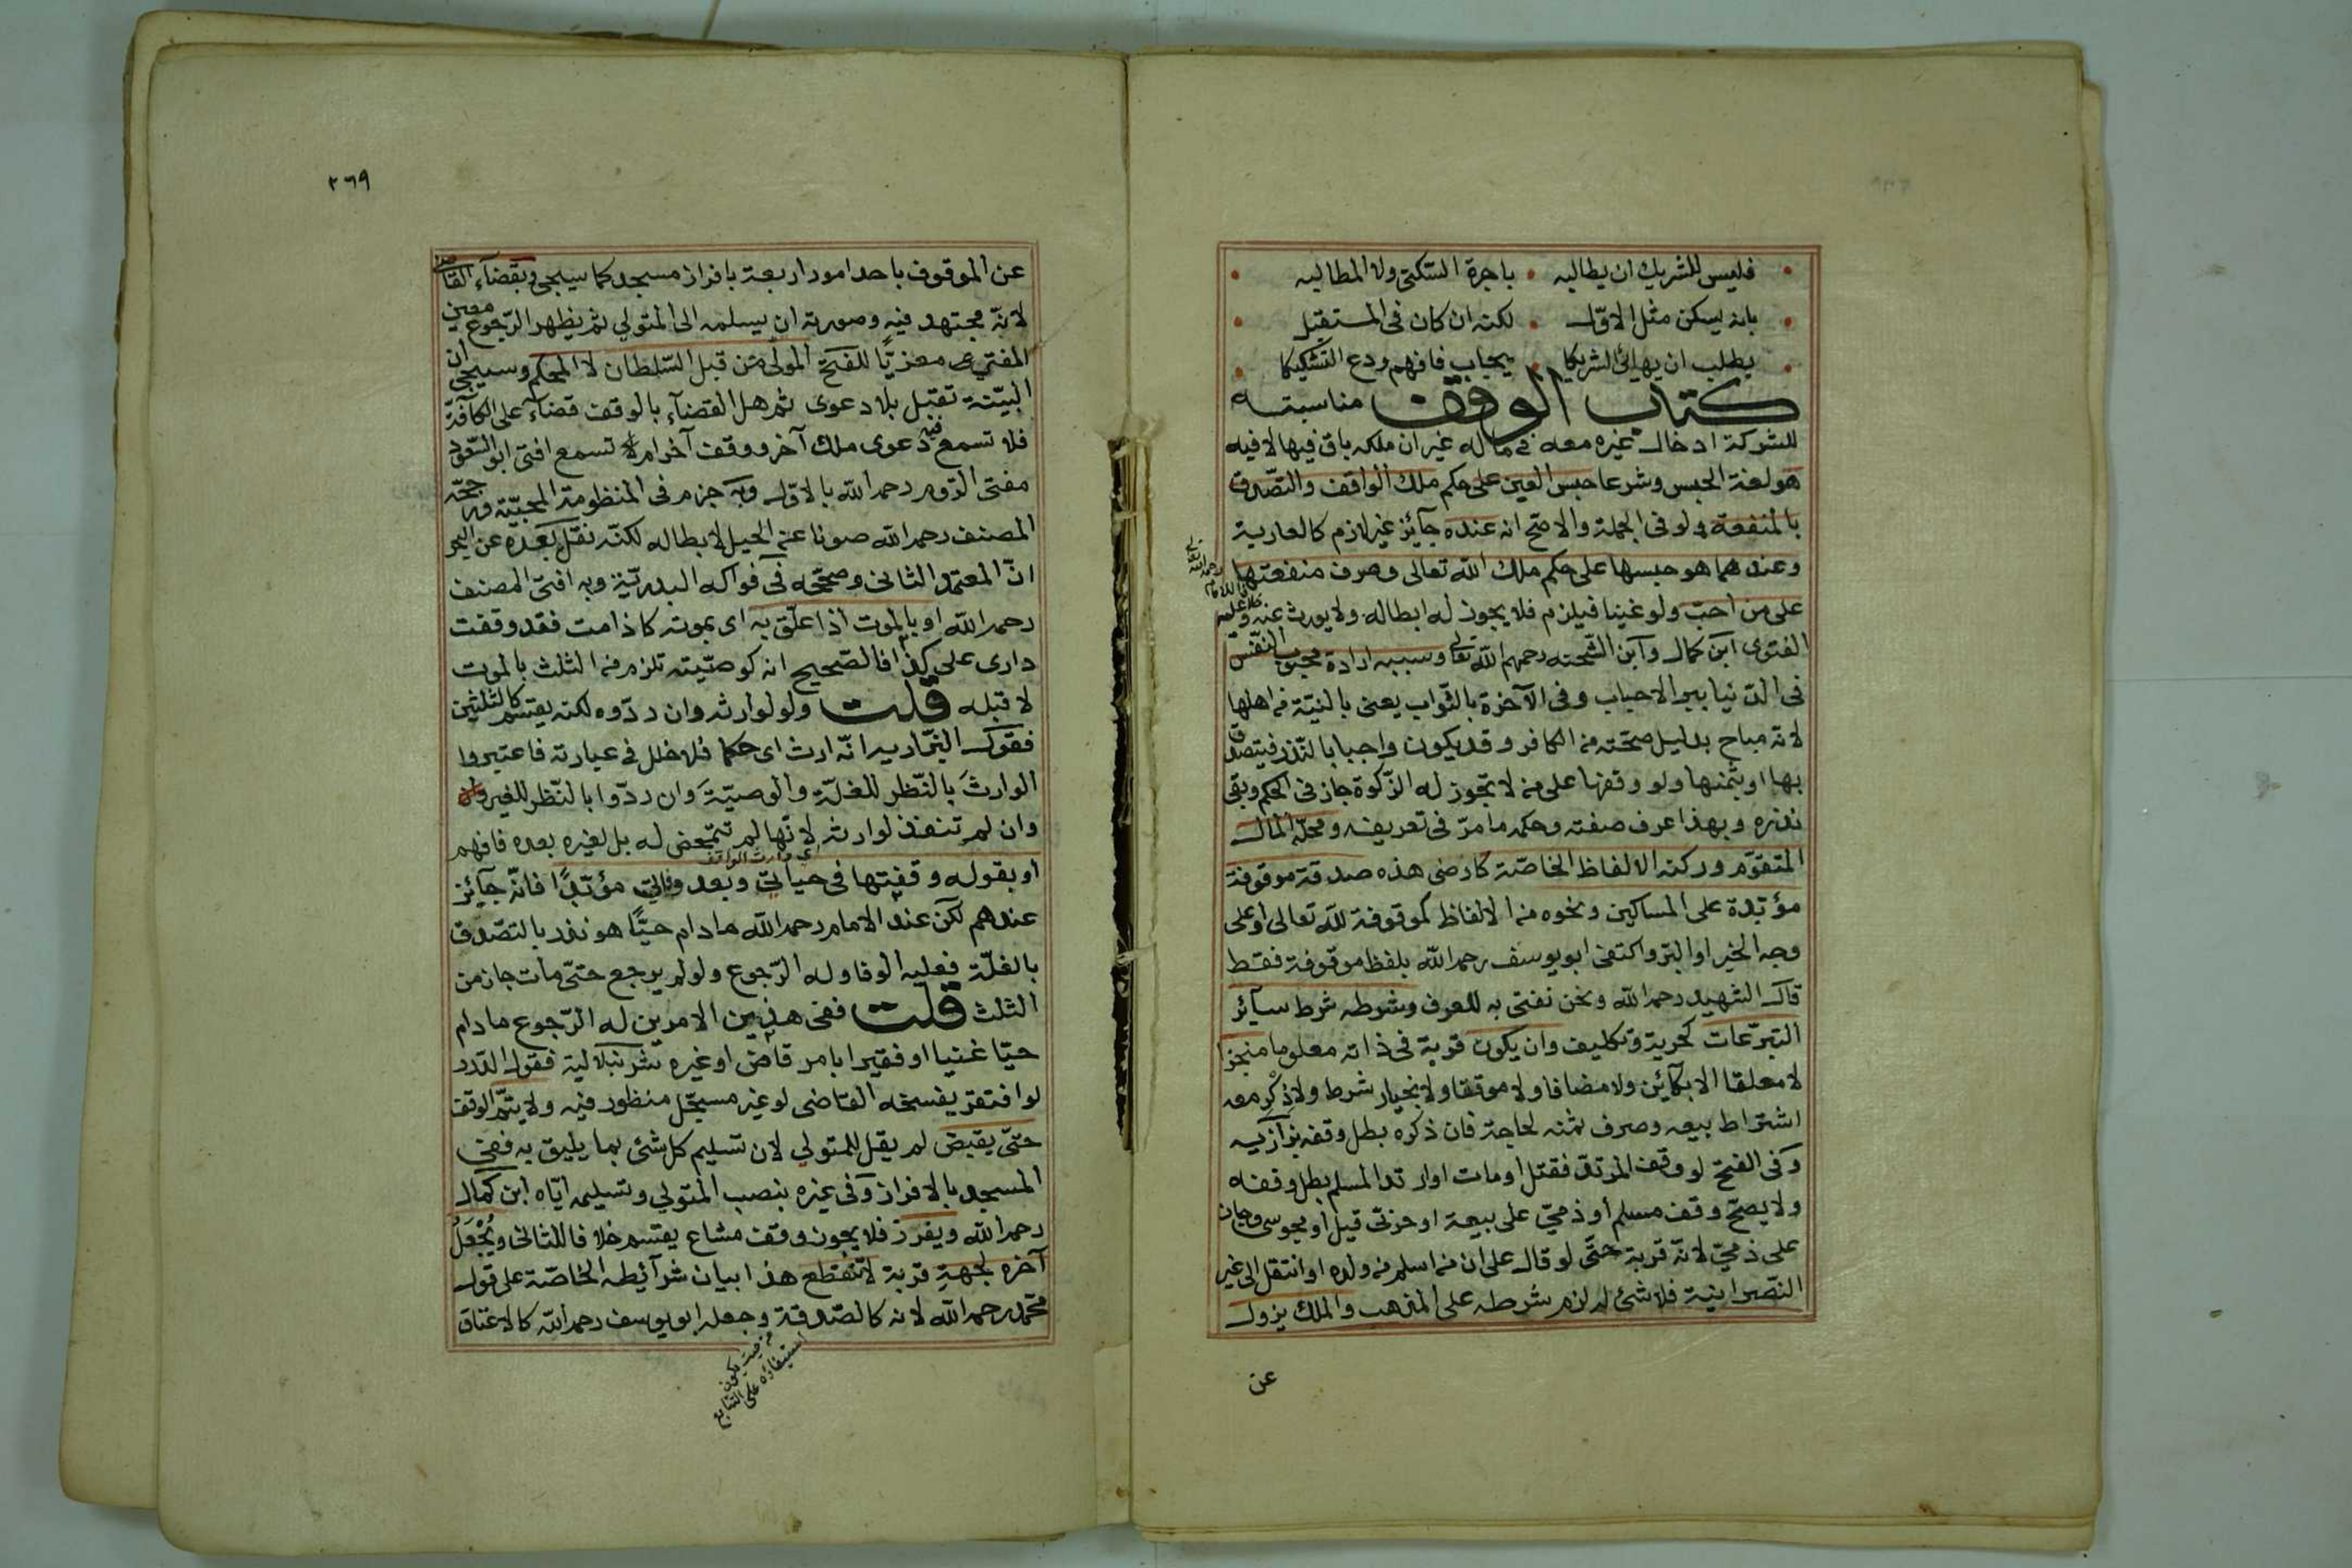 فليس للشريك ان يطالبه • باجرة السكنى ولا المطالبه
بانه يسكن مثل الاول • لكنه ان كان فى المستقبل
يطلب ان يهايئ الشريكا • يجاب فافهم ودع التشكيكا
كتاب الوقف مناسبته
للشركة ادخال غيره معه فى ماله غير ان ملكه باق فيها لا فيه
هو لغة الحبس وشرعا حبس العين على حكم ملك الواقف والتصدق
بالمنفعة ولو فى الجملة والاصح انه عنده جآئز غير لازم كالعارية
وعندهما هو حبسها على حكم ملك الله تعالى وصرف منفعتها
على من احب ولو غنيا فيلزم فلا يجوز له ابطاله ولا يورث عنه وعليه
الفتوى ابن كمال وابن الشحنه رحمهم الله تعالى وسببه ارادة محبوب النفس
فى الدنيا ببر الاحباب وفى الآخرة بالثواب يعنى بالنية من اهلها
لانه مباح بدليل صحته من الكافر وقد يكون واجبا بالنذر فيتصدق
بها او بثمنها ولو وقفها على من لا تجوز له الزكوة جاز فى الحكم وبقى
نذره وبهذا عرف صفته وحكمه ما مر فى تعريفه ومحله المال
المتقوم وركنه الالفاظ الخاصة كارضى هذه صدقة موقوفة
مؤبدة على المساكين ونحوه من الالفاظ كموقوفة لله تعالى او على
وجه الخير او البر واكتفى ابو يوسف رحمه الله بلفظ موقوفة فقط
قال الشهيد رحمه الله ونحن نفتى به للعرف وشرطه شرط سآئر
التبرعات كحرية وتكليف وان يكون قربة فى ذاته معلوما منجزا
لا معلقا الا بكآئن ولا مضافا ولا موقتا ولا بخيار شرط ولا ذِكْرِ معه
اشتراط بيعه وصرف ثمنه لحاجته فان ذكره بطل وقفه بزازيه
وفى الفتح لو وقف المرتد فقتل او مات او ارتد المسلم بطل وقفه
ولا يصح وقف مسلم او ذمى على بيعة او حربى قيل او مجوسى وجاز
على ذمى لانه قربة حتى لو قال على ان من اسلم من ولده او انتقل الى غير
النصرانية فلا شئ له لزم شرطه على المذهب والملك يزول
عن
٢٦٩
عن الموقوف باحد امور اربعة بافراز مسجد كما سيجى وبقضآء القاضى
لانه مجتهد فيه وصورته ان يسلمه الى المتولى ثم يظهر الرجوع معين
المفتى معزيًا للفتح المولى من قبل السلطان لا المحكم وسيجى ان
البينة تقبل بلا دعوى ثم هل القضآء بالوقف قضآء على الكآفة
فلا تسمع فيه دعوى ملك آخر ووقف آخر ام لا تسمع افتى ابو السعود
مفتى الروم رحمه الله بالاول وبه جزم فى المنظومة المحبية ورجحه
المصنف رحمه الله صونا عن الحيل لابطاله لكنه نقل بعده عن البحر
ان المعتمد الثانى وصححه فى فواكه البدرية وبه افتى المصنف
رحمه الله او بالموت اذا علق به اى بموته كاذا مت فقد وقفت
دارى على كذا فالصحيح انه كوصيته تلزم من الثلث بالموت
لا قبله قلت ولو لوارثه وان ردوه لكنه يقسم كالثلثين
فقول البزازيه انه ارث اى حكما فلا خلل فى عبارته فاعتبروا
الوارثَ بالنظر للغلة والوصيّةَ وان ردوا بالنظر للغير
وان لم تنفذ لوارثه لانها لم تتمحض له بل لغيره بعده فافهم
اى وارث الواقف
او بقوله وقفتها فى حياتى وبعد وفاتى مؤبدًا فانه جآئز
عندهم لكن عند الامام رحمه الله ما دام حيًّا هو نذر بالتصدق
بالغلة فعليه الوفا وله الرجوع ولو لم يرجع حتى مات جاز من
الثلث قلت ففى هذين الامرين له الرجوع ما دام
حيا غنيا او فقيرا بامر قاض او غيره شرنبلالية فقول الدرر
لو افتقر يفسخه القاضى لو غير مسجل منظور فيه ولا يتم الوقف
حتى يقبض لم يقل للمتولى لان تسليم كل شئ بما يليق به ففى
المسجد بالافراز وفى غيره بنصب المتولى وتسليمه اياه ابن كمال
رحمه الله ويفرز فلا يجوز وقف مشاع يقسم خلافا للثانى ويُجْعَلُ
آخره لجهةِ قربة لا تنقطع هذا بيان شرآئطه الخاصة على قول
محمد رحمه الله لانه كالصدقة وجعله ابو يوسف رحمه الله كالاعتاق